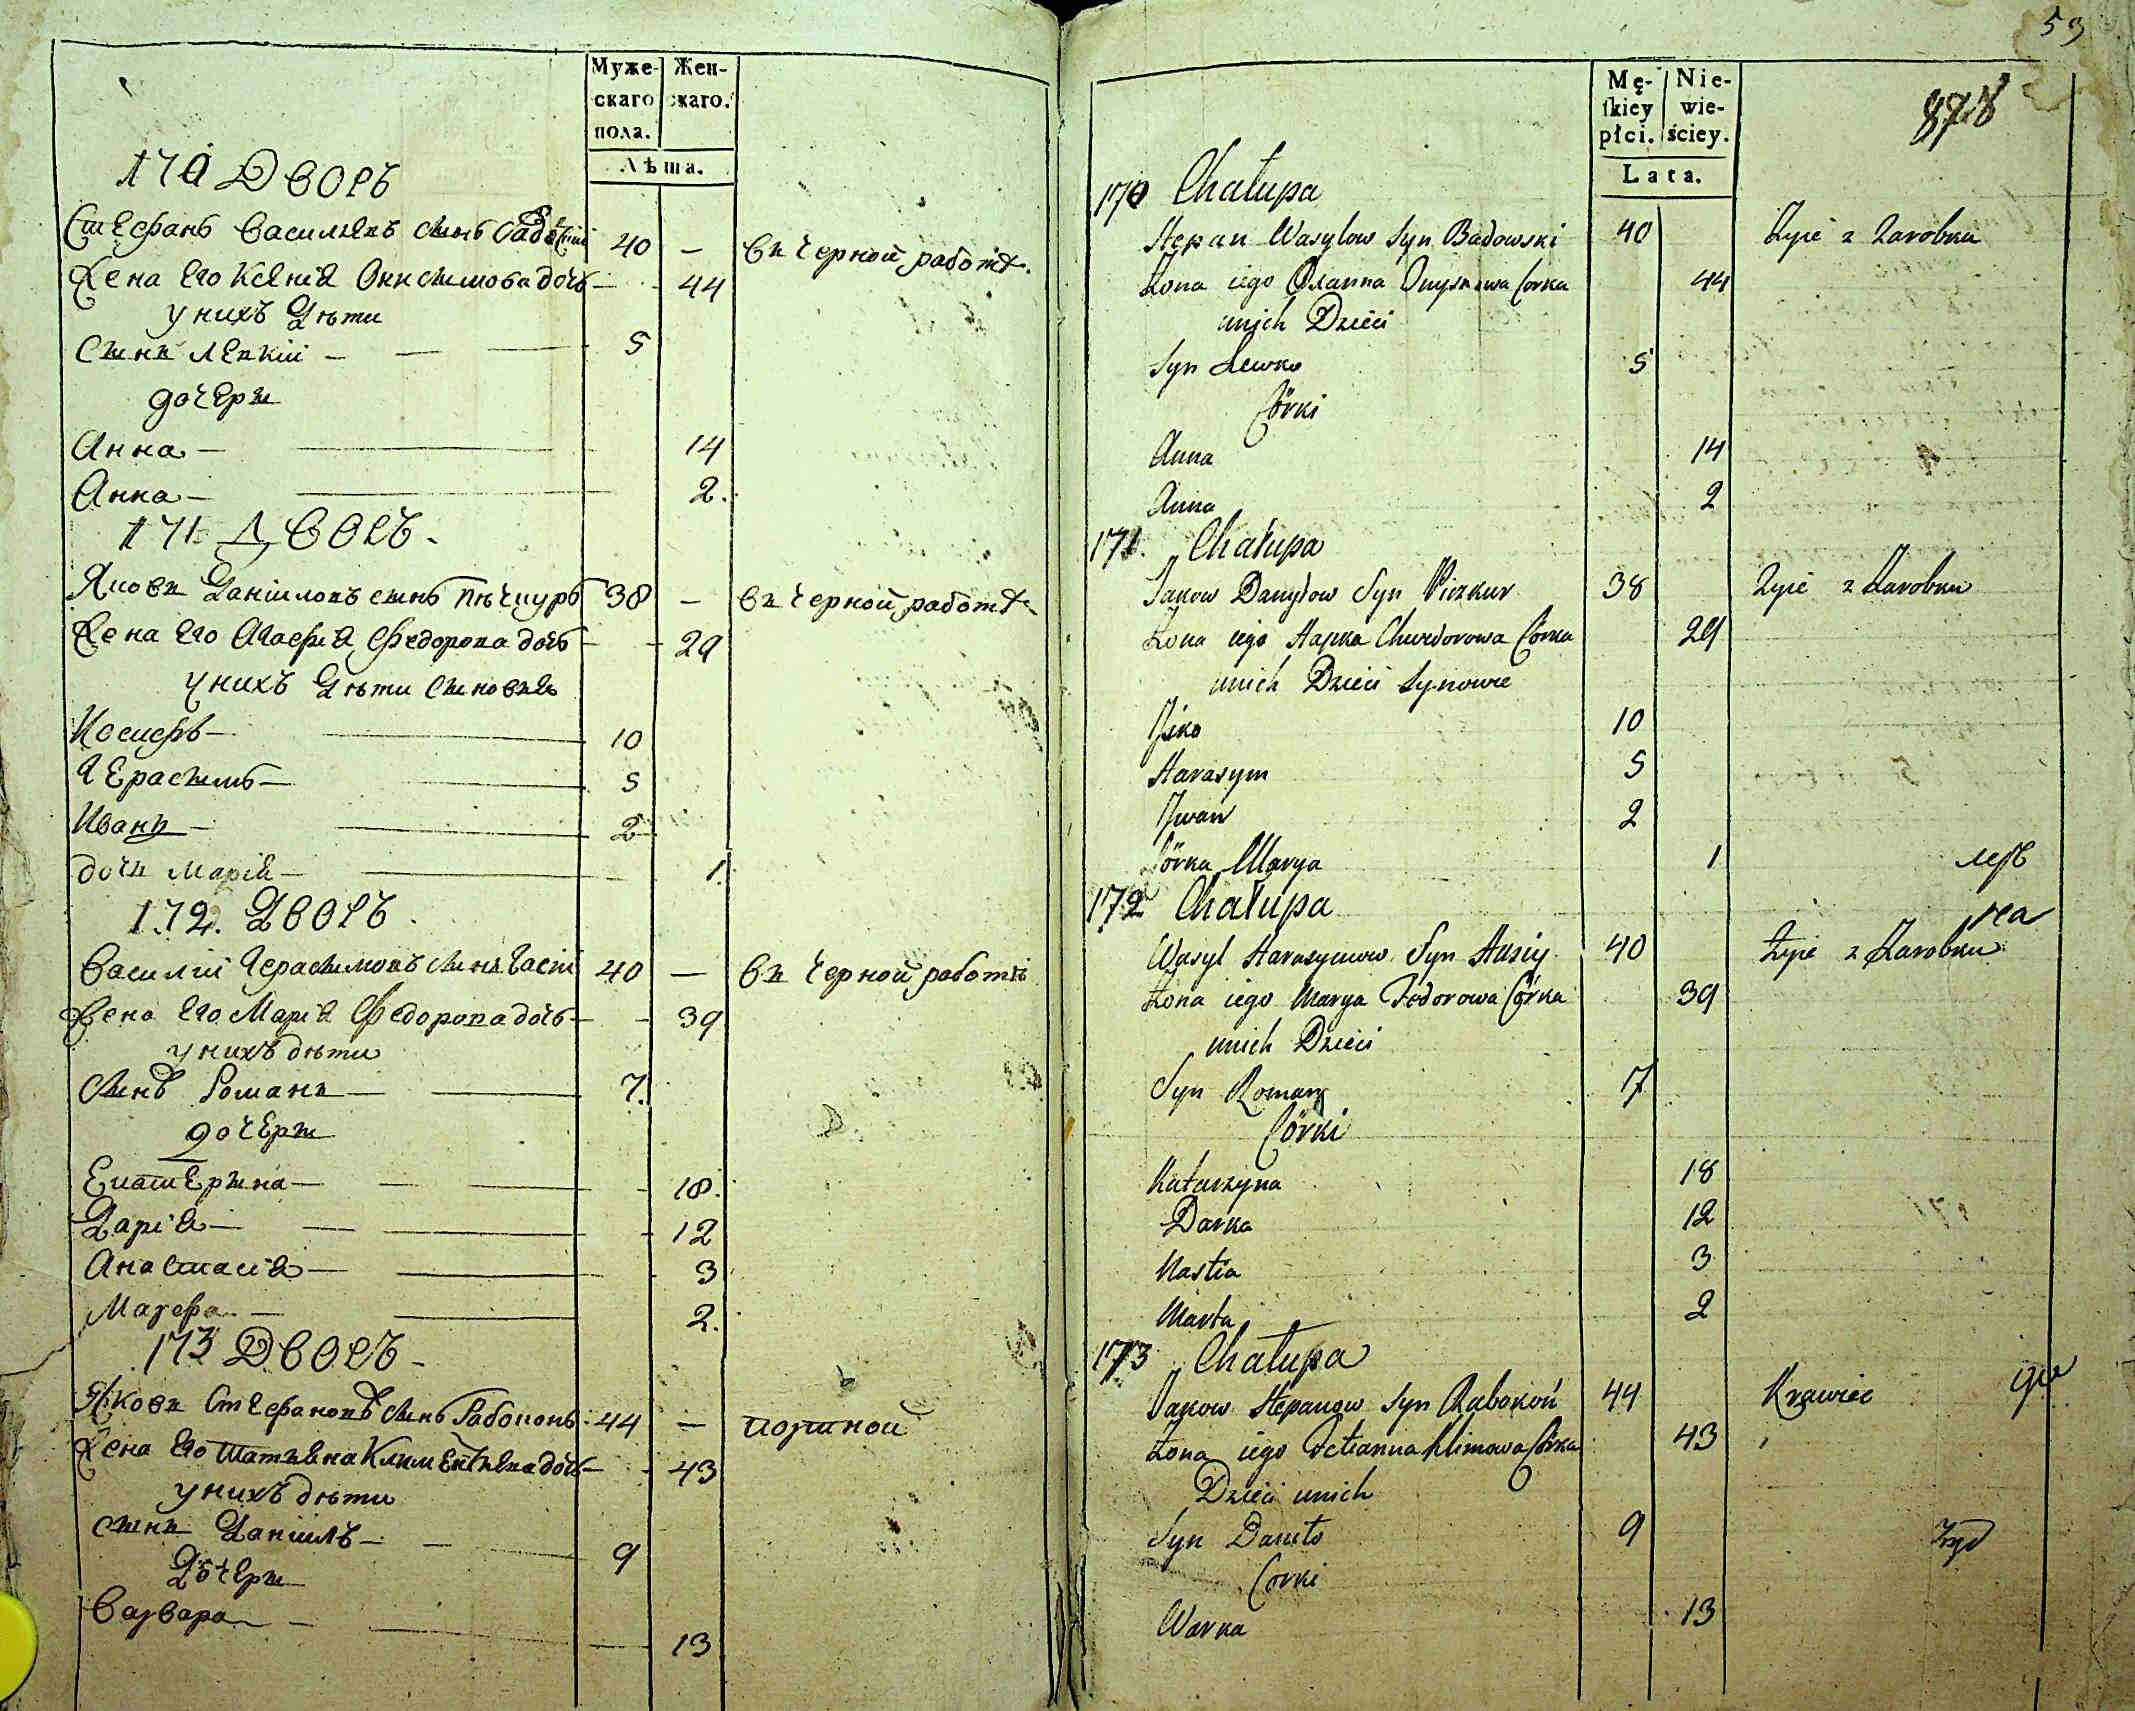 Муже-
скаго
пола.
Жен-
скаго.
Лѣта.
170 Дворъ
Стефанъ Васильевъ сынъ 40 — въ черной работѣ.
Жена его Ксенія Онисимова дочь — 44
у нихъ Дѣти
Сынъ Левкій — 5
дочери
Анна — 14
Анна — 2.
171 Дворъ.
Яковъ Даніиловъ сынъ Пѣчкуръ 38 — въ черной работѣ
Жена его Агафія Федорова дочь — 29
у нихъ Дѣти сыновья
Иосифъ — 10
Герасимъ — 5
Иванъ — 2
дочь Марія — 1.
172. Дворъ.
Василій Герасимовъ сынъ Гасій 40 — въ черной работѣ
Жена его Марія Федорова дочь — 39
у нихъ дѣти
Сынъ Романъ — 7.
дочери
Екатерина — 18.
Дарія — 12
Анастасія — 3
Марфа — 2.
173 Дворъ
Яковъ Стефановъ сынъ Рабоконь 44 — портной
Жена его Татьяна Климентьева дочь — 43
у нихъ дѣти
сынъ Даніилъ — 9
Дочери
Варвара — 13
53
Mę-
skiey
płci.
Nie-
wie-
ściey.
Lata.
170 Chałupa
Stepan Wasylow Syn Badowski 40 Żyie z Zarobku
Żona iego Oxanna Onyskowa Corka 44
unich Dzieci
Syn Lewko 5
Córki
Anna 14
Anna 2
171. Chałupa
Jakow Danyłow Syn Piczkur 38 Żyie z Zarobku
Żona iego Hapka Chwedorowa Córka 29
unich Dzieci Synowie
Jśko 10
Harasym 5
Jwan 2
Córka Marya 1
172 Chałupa
Wasyl Harasymow Syn Hasiy 40 Żyie z Zarobku
Żona iego Marya Fedorowa Córka 39
unich Dzieci
Syn Roman 7
Córki
Katarzyna 18
Darka 12
Nastia 3
Marta 2
173 Chałupa
Jakow Stepanow Syn Rabokoń 44 Krawiec
Żona iego Tetianna Klimowa Córka 43
Dzieci unich
Syn Daniło 9
Corki
Warka 13